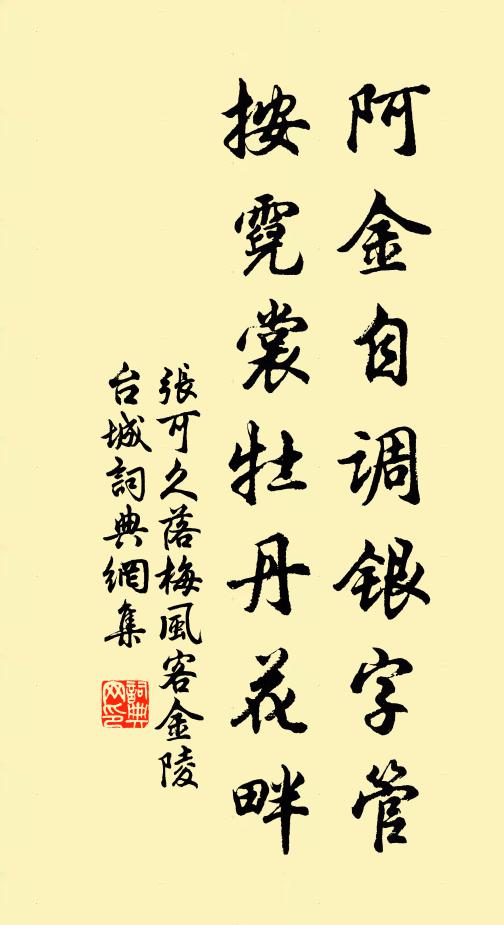 阿金自调银字管
按霓裳牡丹花畔
張可久落梅風客金陵
台城詞典網集
詞典网印